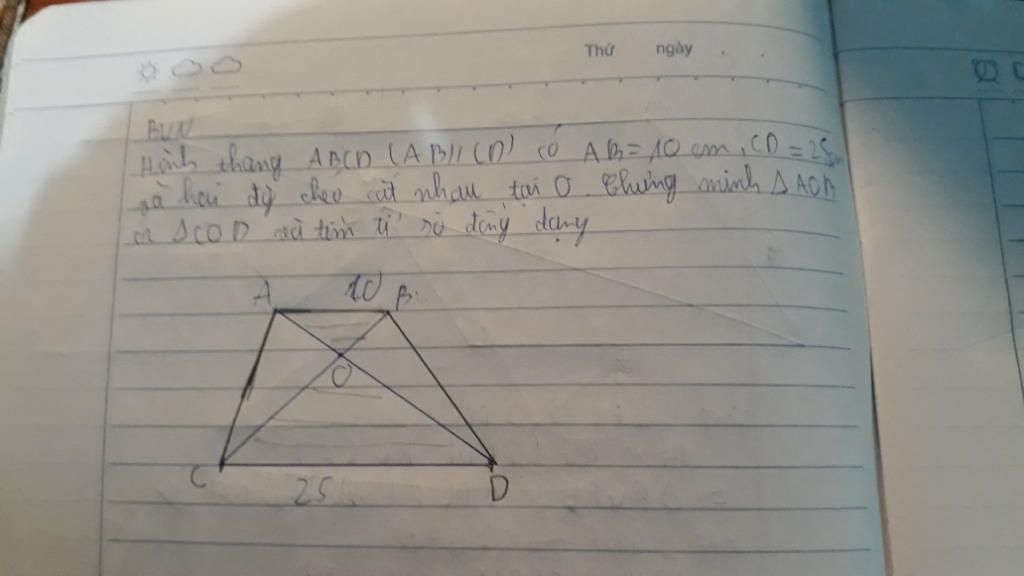 Thứ ngày
BVN
Hình thang ABCD (AB//CD) có AB = 10 cm, CD = 25cm
và hai đg chéo cắt nhau tại O. Chứng minh ΔAOB
ΔCOD và tìm tỉ số đồng dạng
A 10 B
O
C 25 D